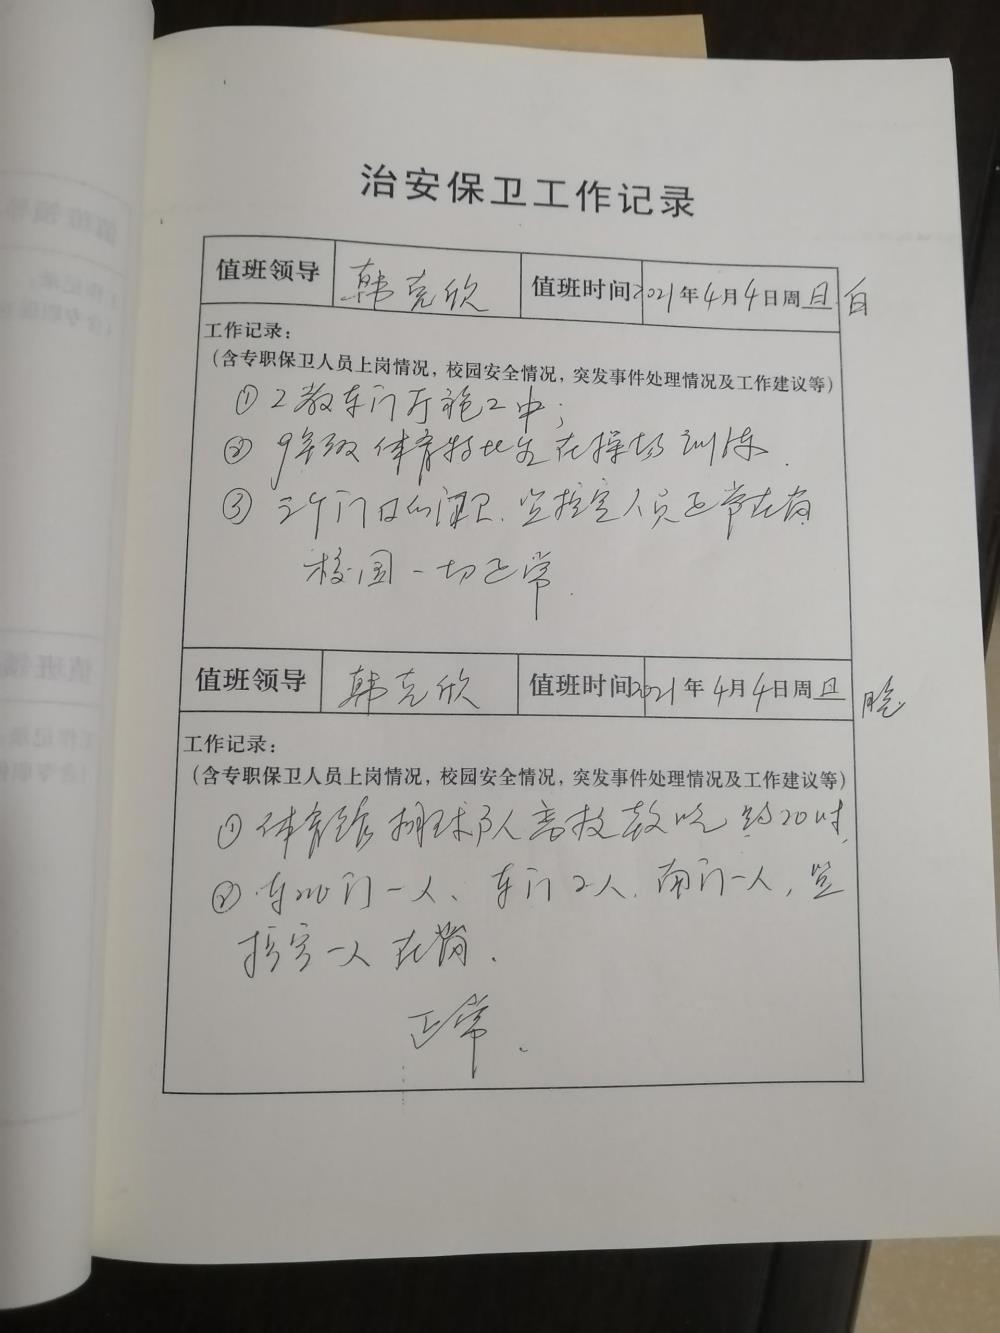 治安保卫工作记录
值班领导 韩克欣 值班时间 2021年4月4日周日 白
工作记录:
(含专职保卫人员上岗情况，校园安全情况，突发事件处理情况及工作建议等)
① 2教东门厅施工中;
② 9年级体育特长生在操场训练.
③ 三个门口的门卫、监控室人员正常在岗
校园一切正常.
值班领导 韩克欣 值班时间 2021年4月4日周日 晚
工作记录:
(含专职保卫人员上岗情况，校园安全情况，突发事件处理情况及工作建议等)
① 体育馆排球队 20时
② 门一人、车门2人.南门一人，监
控室一人在岗.
正常.